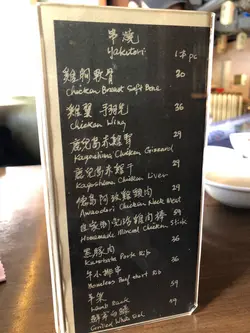 串燒
Yakitori 1本 pc
雞胸軟骨 30
Chicken Breast Soft Bone
雞翼 手羽先 36
Chicken Wing
鹿兒島赤雞腎 29
Kagoshima Chicken Gizzard
鹿兒島赤雞干 29
Kagoshima Chicken Liver
德島阿波雞頸肉 29
Awaodori Chicken Neck Meat
自家制 雞肉棒 59
Homemade Minced Chicken Stick
黑豚肉 36
Kurobuta Pork Rib
牛小柳串 36
Boneless Beef short Rib
羊架 59
Lamb Rack
49
Grilled Whole